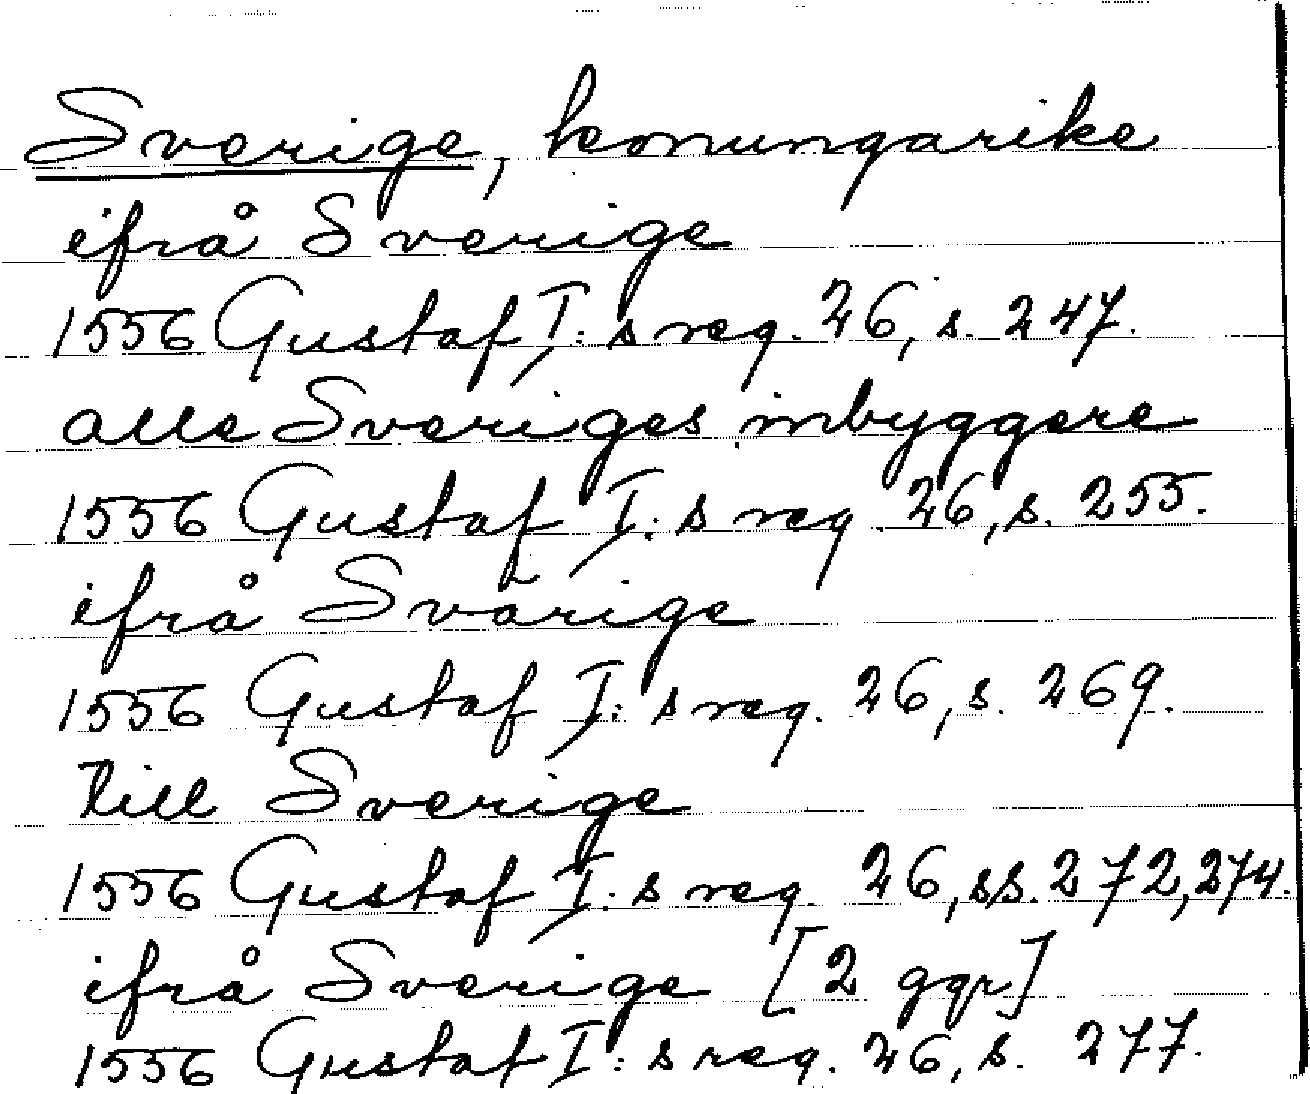 Sverige, konungarike
ifrå Sverige
1556 Gustaf I:s reg. 26, s. 247.
alle Sveriges inbyggere
1556 Gustaf I:s reg. 26, s. 255.
ifrå Svärige
1556 Gustaf I:s reg. 26, s. 269.
till Sverige
1556 Gustaf I:s reg. 26, ss. 272, 274.
ifrå Sverige [2 ggr]
1556 Gustaf I:s reg. 26, s. 277.